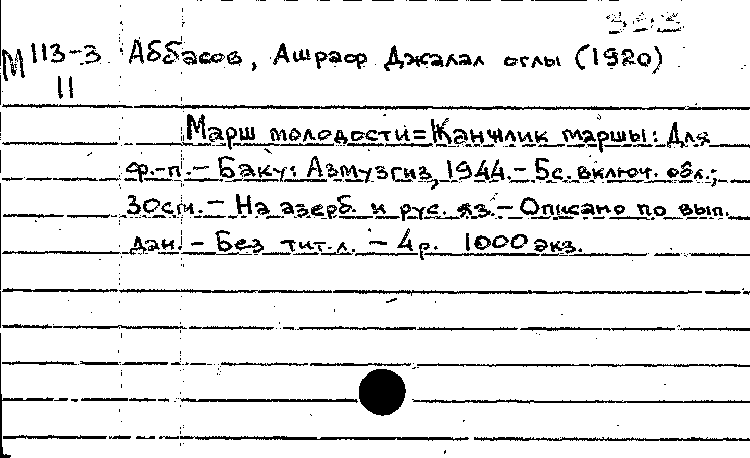 333
М 113-3 Аббасов, Ашраф Джалал оглы (1920)
11
Марш молодости=Жанчлик маршы: Для
ф.-п.- Баку: Азмузгиз, 1944.- 5с. включ. обл.;
30см.- На азерб. и рус. яз.- Описано по вып.
дан.- Без тит.л. - 4р. 1000 экз.